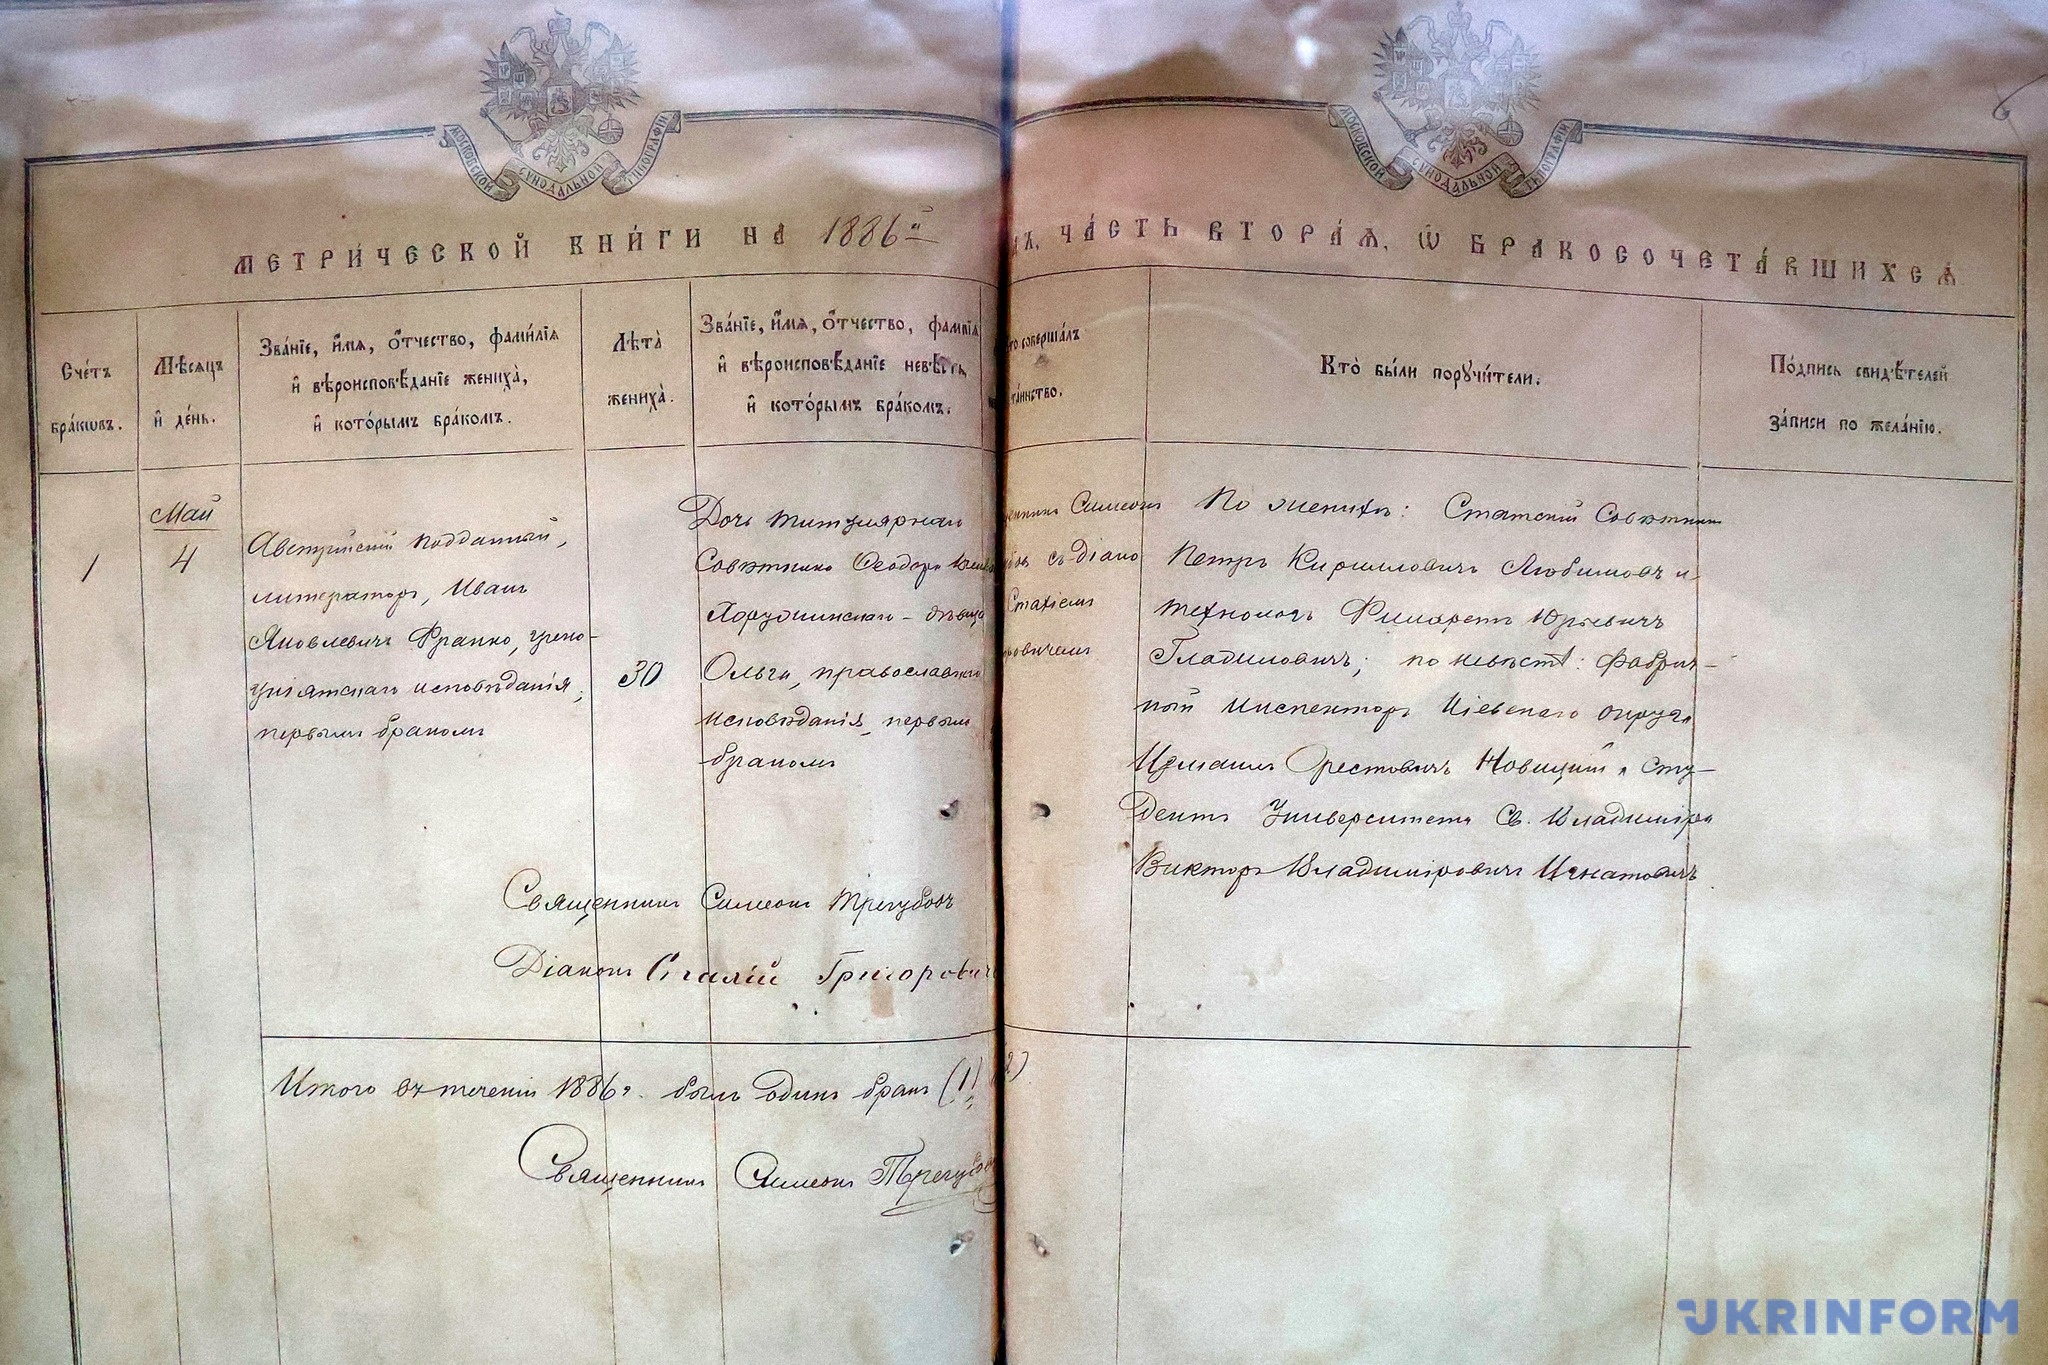 МОСКОВСКОЙ СѴНОДАЛЬНОЙ ТИПОГРАФІИ
МОСКОВСКОЙ СѴНОДАЛЬНОЙ ТИПОГРАФІИ
МЕТРИ́ЧЕСКОЙ КНИ́ГИ НА 1886й
ЧА́СТЬ ВТОРА́Ѧ, Ѿ БРАКОСОЧЕТА́ВШИХСѦ
Сче́тъ
бра́кѡвъ.
Мѣ́сяцъ
и҆ де́нь.
Зва́нїе, и҆́мѧ, о҆́тчество, фами́лїѧ
и҆ вѣроисповѣ́данїе жениха̀,
и҆ кото́рымъ бра́комъ.
Лѣ́та̀
жениха̀.
Зва́нїе, и҆́мѧ, о҆́тчество, фами́лїѧ
и҆ вѣроисповѣ́данїе невѣ́сты,
и҆ кото́рымъ бра́комъ.
совершáлъ
та́инство.
Кто̀ бы́ли порꙋчи́тели.
По́дпись свидѣ́телей
за́писи по жела́нїю.
1
Май
4
Австрійскій подданный,
литераторъ, Иванъ
Яковлевичъ Франко, греко-
уніятскаго исповѣданія,
первымъ бракомъ
30
Дочь титулярнаго
Совѣтника Ѳеодора
Хоружинскаго - дѣвица
Ольга, православнаго
исповѣданія, первымъ
бракомъ
Симеонъ
съ діако
Стахіемъ
ровичемъ
По женихѣ: Статскій Совѣтникъ
Петръ Кирилловичъ Любимовъ и
технологъ Филаретъ Юрьевичъ
Гладиловичъ; по невѣстѣ: фабрич-
ный инспекторъ Кіевскаго округа
Измаилъ Орестовичъ Новицкій и сту-
дентъ Университета Св. Владиміра
Викторъ Владиміровичъ Игнатовичъ
Священникъ Симеонъ Трегубовъ
Діаконъ Григоровичъ
Итого въ теченіи 1886 г. былъ одинъ бракъ (1)
Священникъ Симеонъ Трегубовъ
UKRINFORM